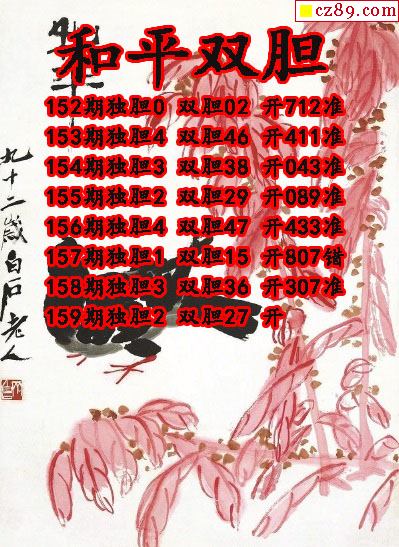 cz89.com
和平双胆
152期独胆0 双胆02 开712准
153期独胆4 双胆46 开411准
154期独胆3 双胆38 开043准
155期独胆2 双胆29 开089准
156期独胆4 双胆47 开433准
157期独胆1 双胆15 开807错
158期独胆3 双胆36 开307准
159期独胆2 双胆27 开
九十二岁白石老人